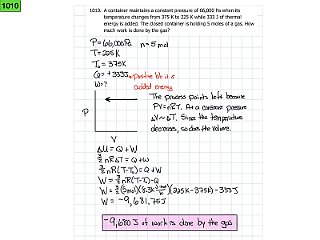 1010
1010. A container maintains a constant pressure of 66,000 Pa when its
temperature changes from 375 K to 225 K while 333 J of thermal
energy is added. The closed container is holding 5 moles of a gas. How
much work is done by the gas?
P=66,000Pa n=5 mol
T=225K
T₀=375K
Q=+333J *positive b/c it is
added energy
W=?
The process points left because
PV=nRT. At a constant pressure
ΔV~ΔT. Since the temperature
decreases, so does the volume.
P
V
ΔU=Q+W
3/2 nRΔT=Q+W
3/2 nR(T-T₀)=Q+W
W=3/2 nR(T-T₀)-Q
W=3/2(5mol)(8.31)(225K-375K)-333J
W=-9,681.75J
-9,680 J of work is done by the gas